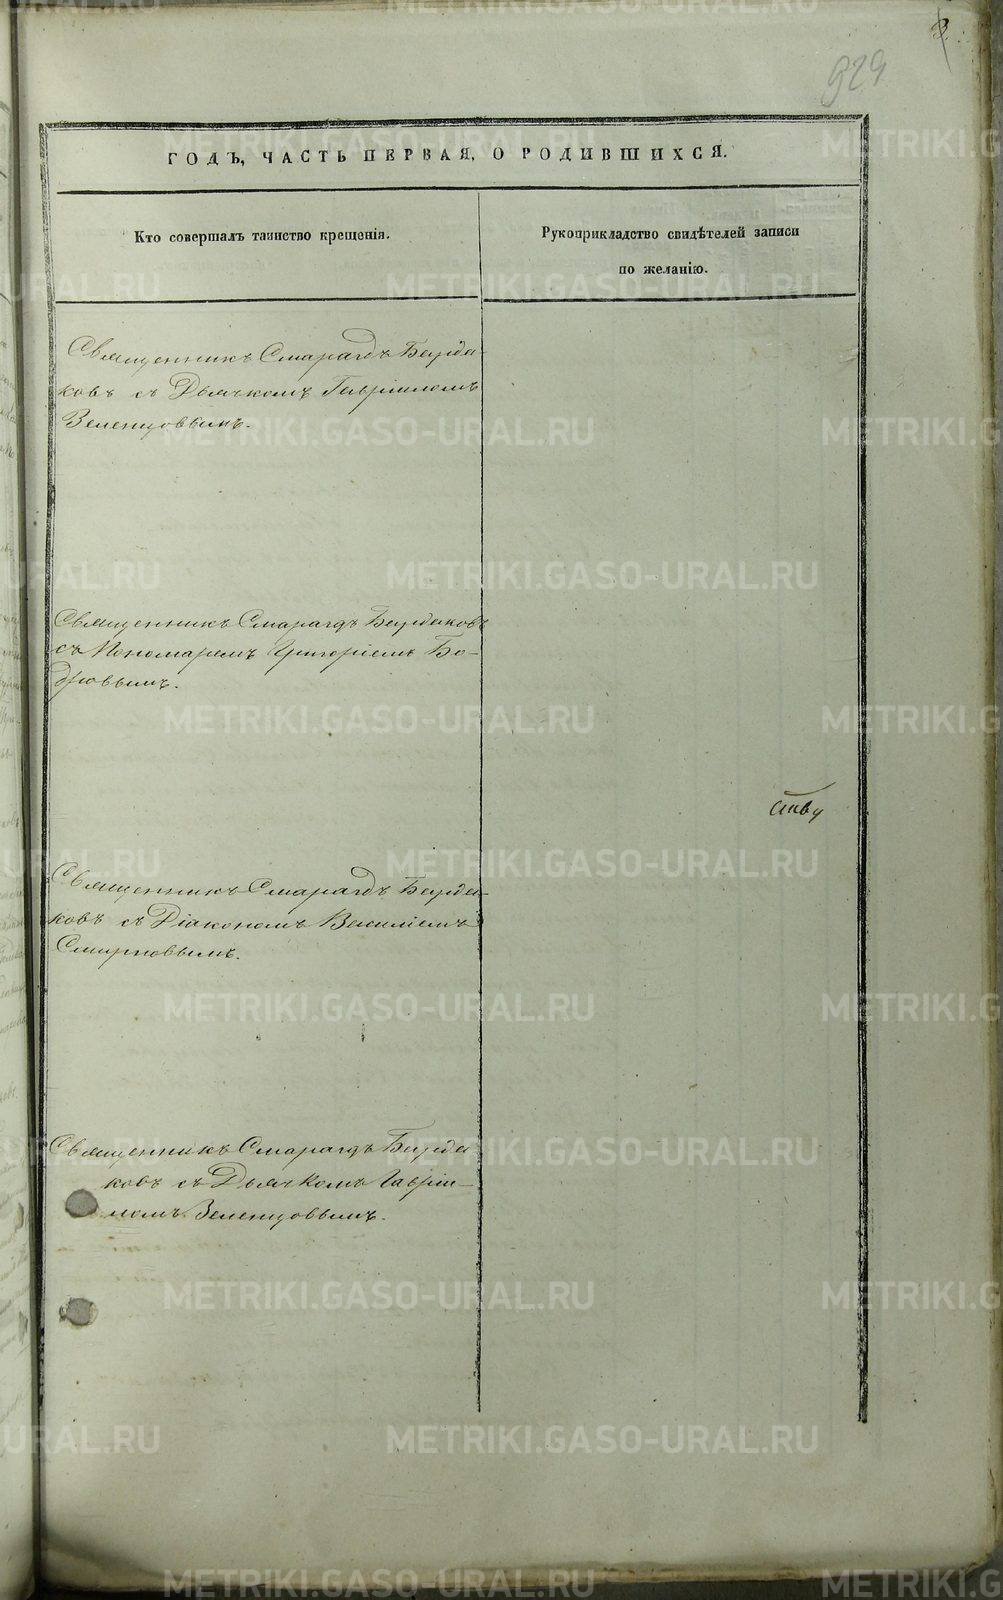 3
929
ГОДЪ, ЧАСТЬ ПЕРВАЯ, О РОДИВШИХСЯ.
Кто совершалъ таинство крещенія.
Рукоприкладство свидѣтелей записи
по желанію.
Священникъ Смарагдъ Бурда-
ковъ съ Дьячкомъ Гавріиломъ
Зеленцовымъ.
Священникъ Смарагдъ Бурдаковъ
съ Пономаремъ Григоріемъ Бо-
дровымъ.
ству
Священникъ Смарагдъ Бурда-
ковъ съ Діакономъ Василіемъ
Смирновымъ.
Священникъ Смарагдъ Бурда
ковъ съ Дьячкомъ Гаврiи-
ломъ Зеленцовымъ.
METRIKI.GASO-URAL.RU